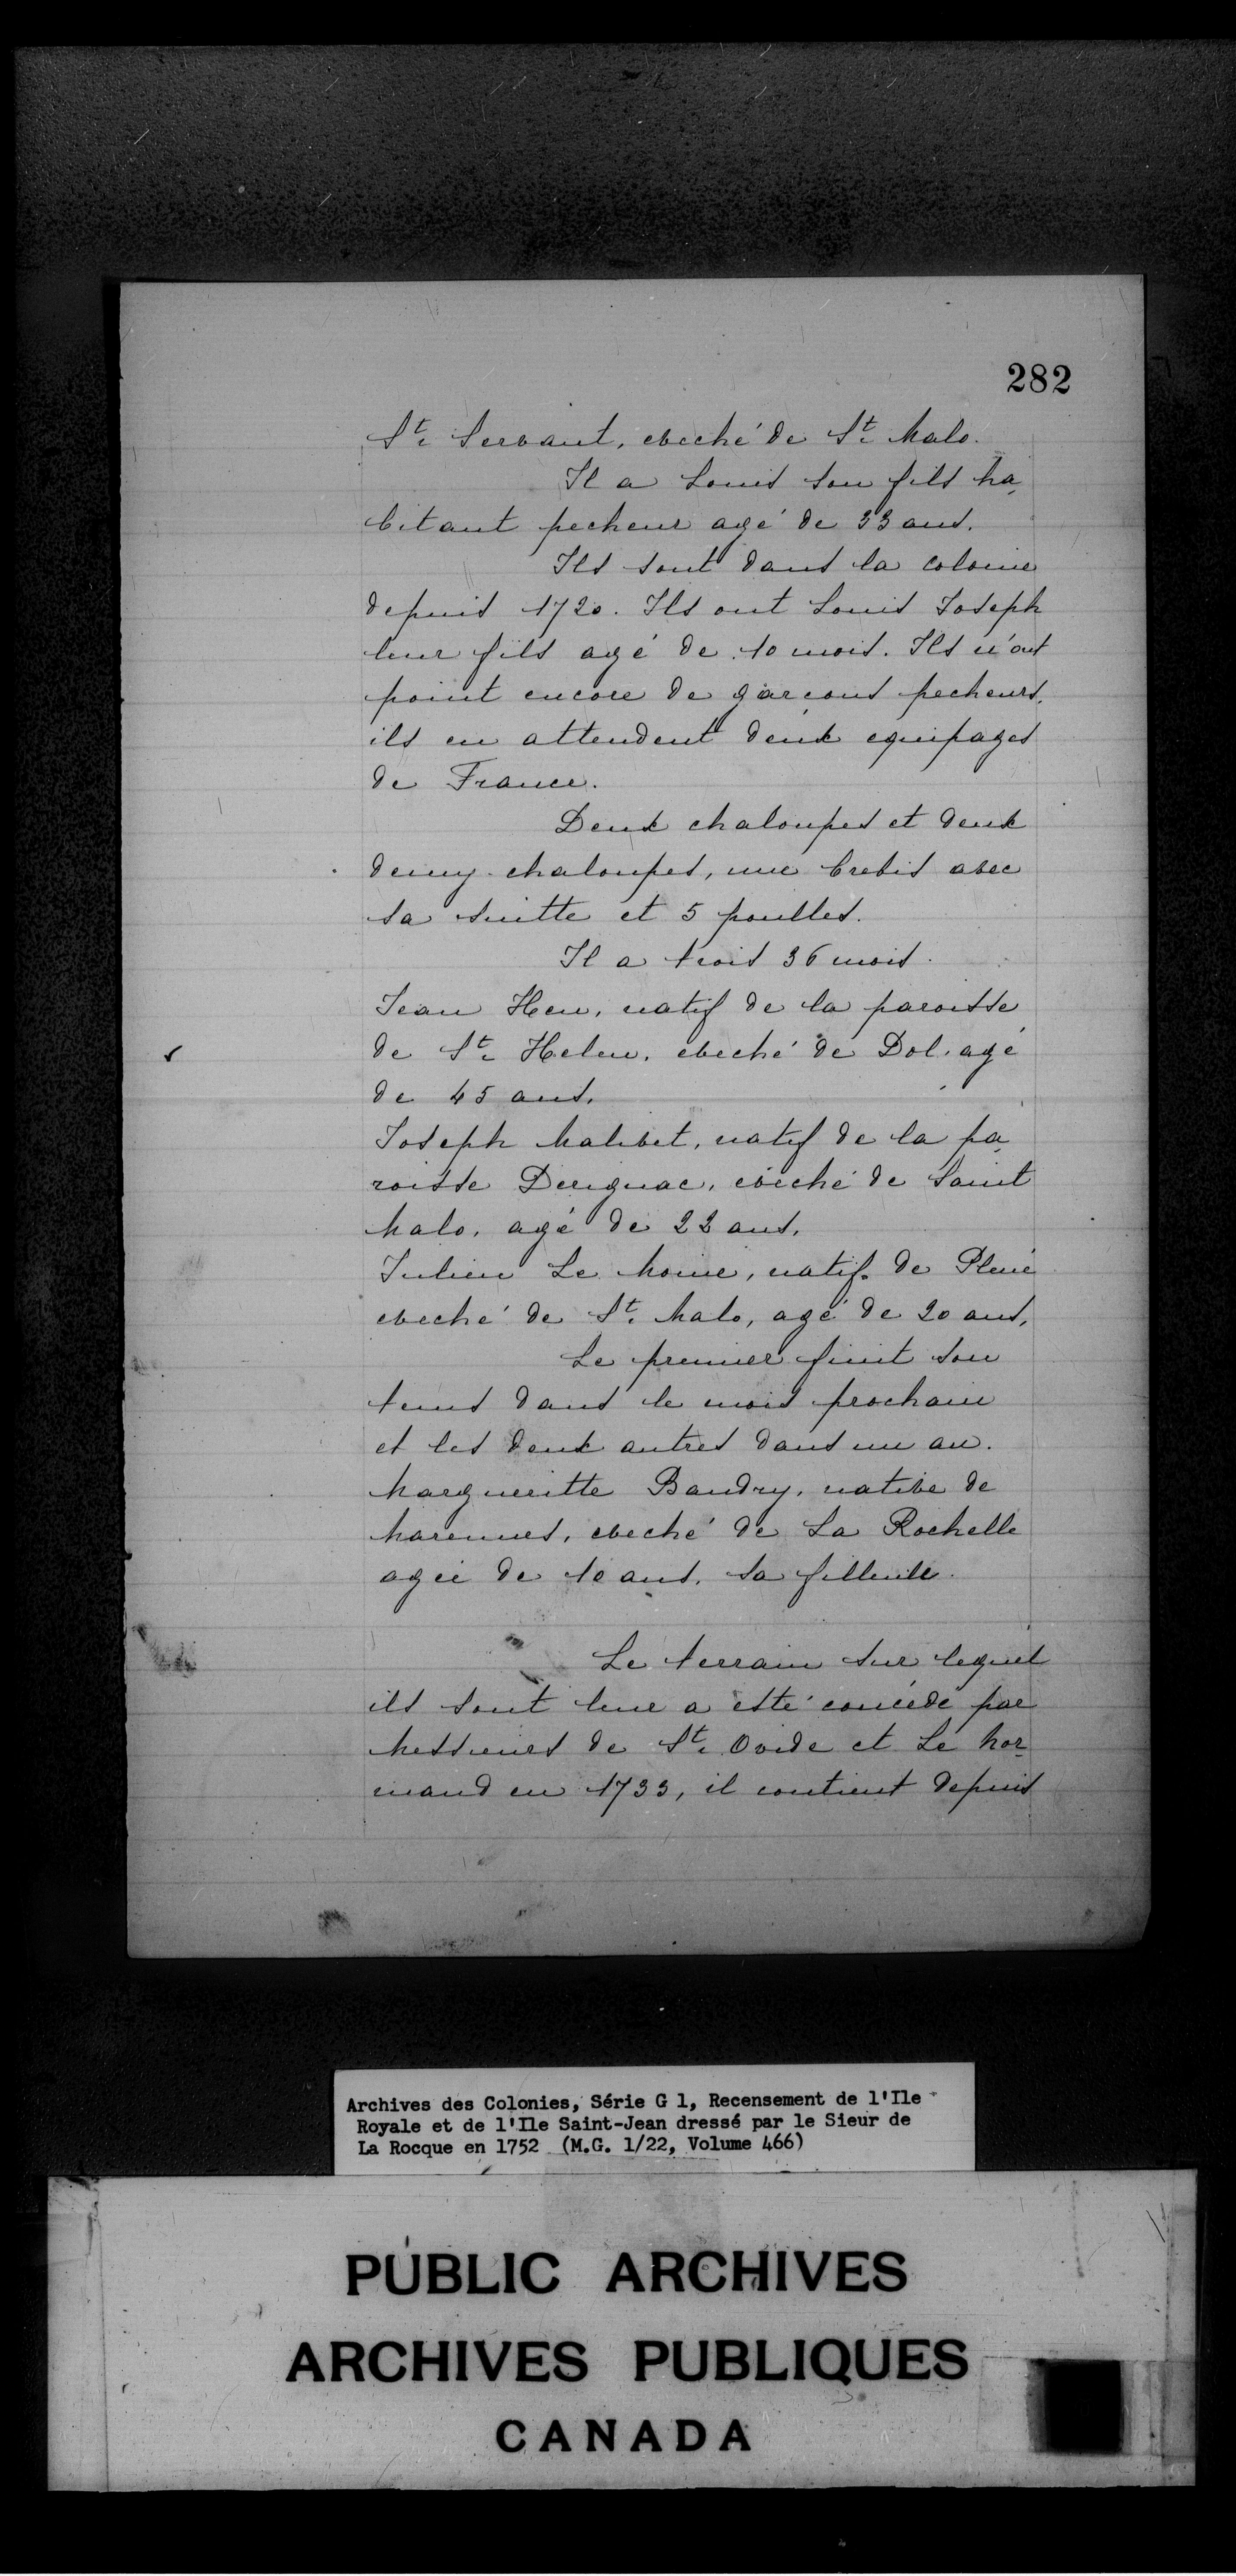 282
St. Servant, eveché de St. Malo.
Il a Louis son fils ha
bitant pecheur agé de 33 ans.
Ils sont dans la colonie
depuis 1720. Ils ont Louis Joseph
leur fils agé de 10 mois. Ils n'ont
point encore de garçons pecheurs,
ils en attendent deux equipages
de France.
Deux chaloupes et deux
demy-chaloupes, une brebis avec
sa suitte et 5 poulles.
Il a trois 36 mois.
Jean Heu, natif de la paroisse
de St. Helen, eveché de Dol, agé
de 45 ans.
Joseph Malibet, natif de la pa
roisse Derignac, évéché de Saint
Malo, agé de 22 ans.
Julien Le Moine, natif de Plené
eveché de St. Malo, agé de 20 ans.
Le premier finit son
tems dans le mois prochain
et les deux autres dans un an.
Margueritte Baudry, native de
Marennes, eveché de La Rochelle
agée de 10 ans, sa filleule.
Le terrain sur lequel
ils sont leur a esté concédé par
Messieurs de St. Ovide et Le Nor
mand en 1733, il contient depuis
Archives des Colonies, Série G 1, Recensement de l'Ile
Royale et de l'Ile Saint-Jean dressé par le Sieur de
La Rocque en 1752 (M.G. 1/22, Volume 466)
PUBLIC ARCHIVES
ARCHIVES PUBLIQUES
CANADA